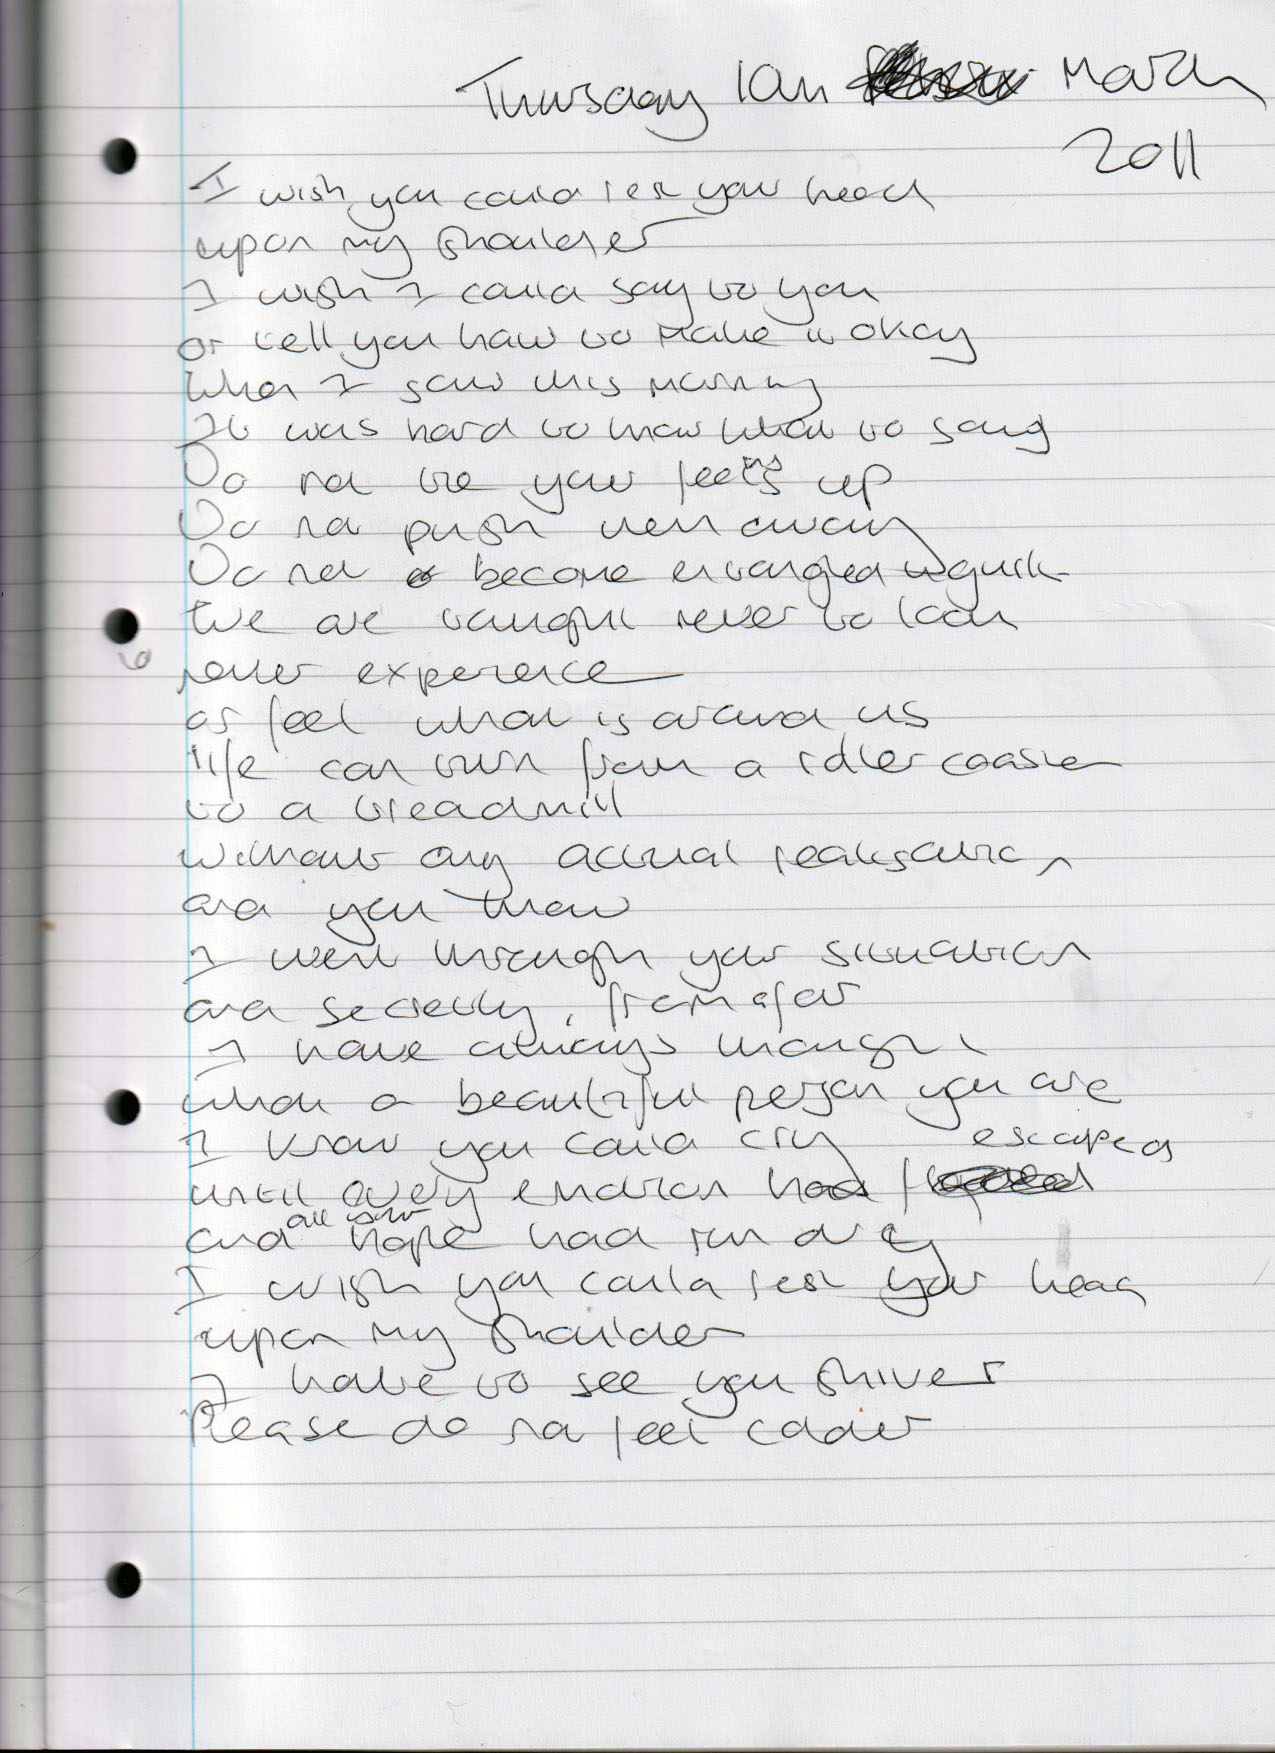 Thursday 10th March
2011
I wish you could rest your head
upon my shoulder
I wish I could say to you
or tell you how to make it okay
When I saw this morning
It was hard to know what to say
Do not tie your feelings up
Do not push them away
Do not become entangled in guilt
We are taught never to loan
never experience
or feel what is around us
life can turn from a roller coaster
to a treadmill
without any actual realisation,
and you know
I went through your situation
and secretly, from afar
I have always thought
what a beautiful person you are
I know you could cry
until every emotion had escaped
and all your hope had run dry
I wish you could rest your head
upon my shoulder
I hate to see you shiver
Please do not feel colder